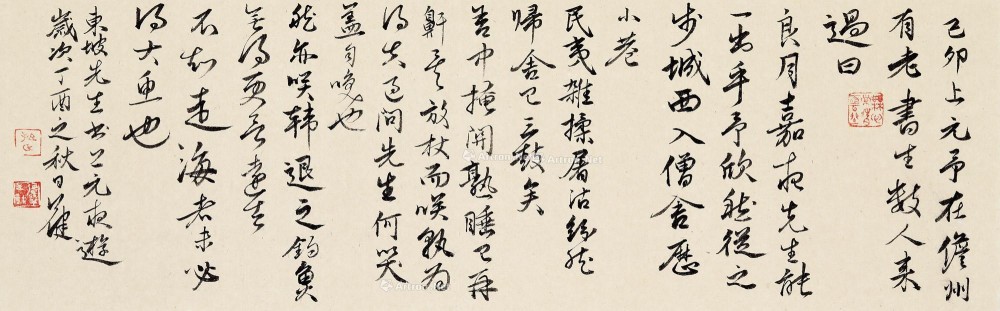 己卯上元予在儋州
有老書生數人来
過曰
良月嘉夜先生能
一出乎予欣然從之
步城西入僧舍歷
小巷
民夷雜揉屠沽紛然
歸舍已三鼓矣
舍中掩關熟睡已再
鼾矣放杖而咲孰為
得失過問先生何笑
盖自咲也
然亦咲韓退之釣魚
無得更欲遠去
不知走海者未必
得大魚也
東坡先生書上元夜遊
歲次丁酉之秋日